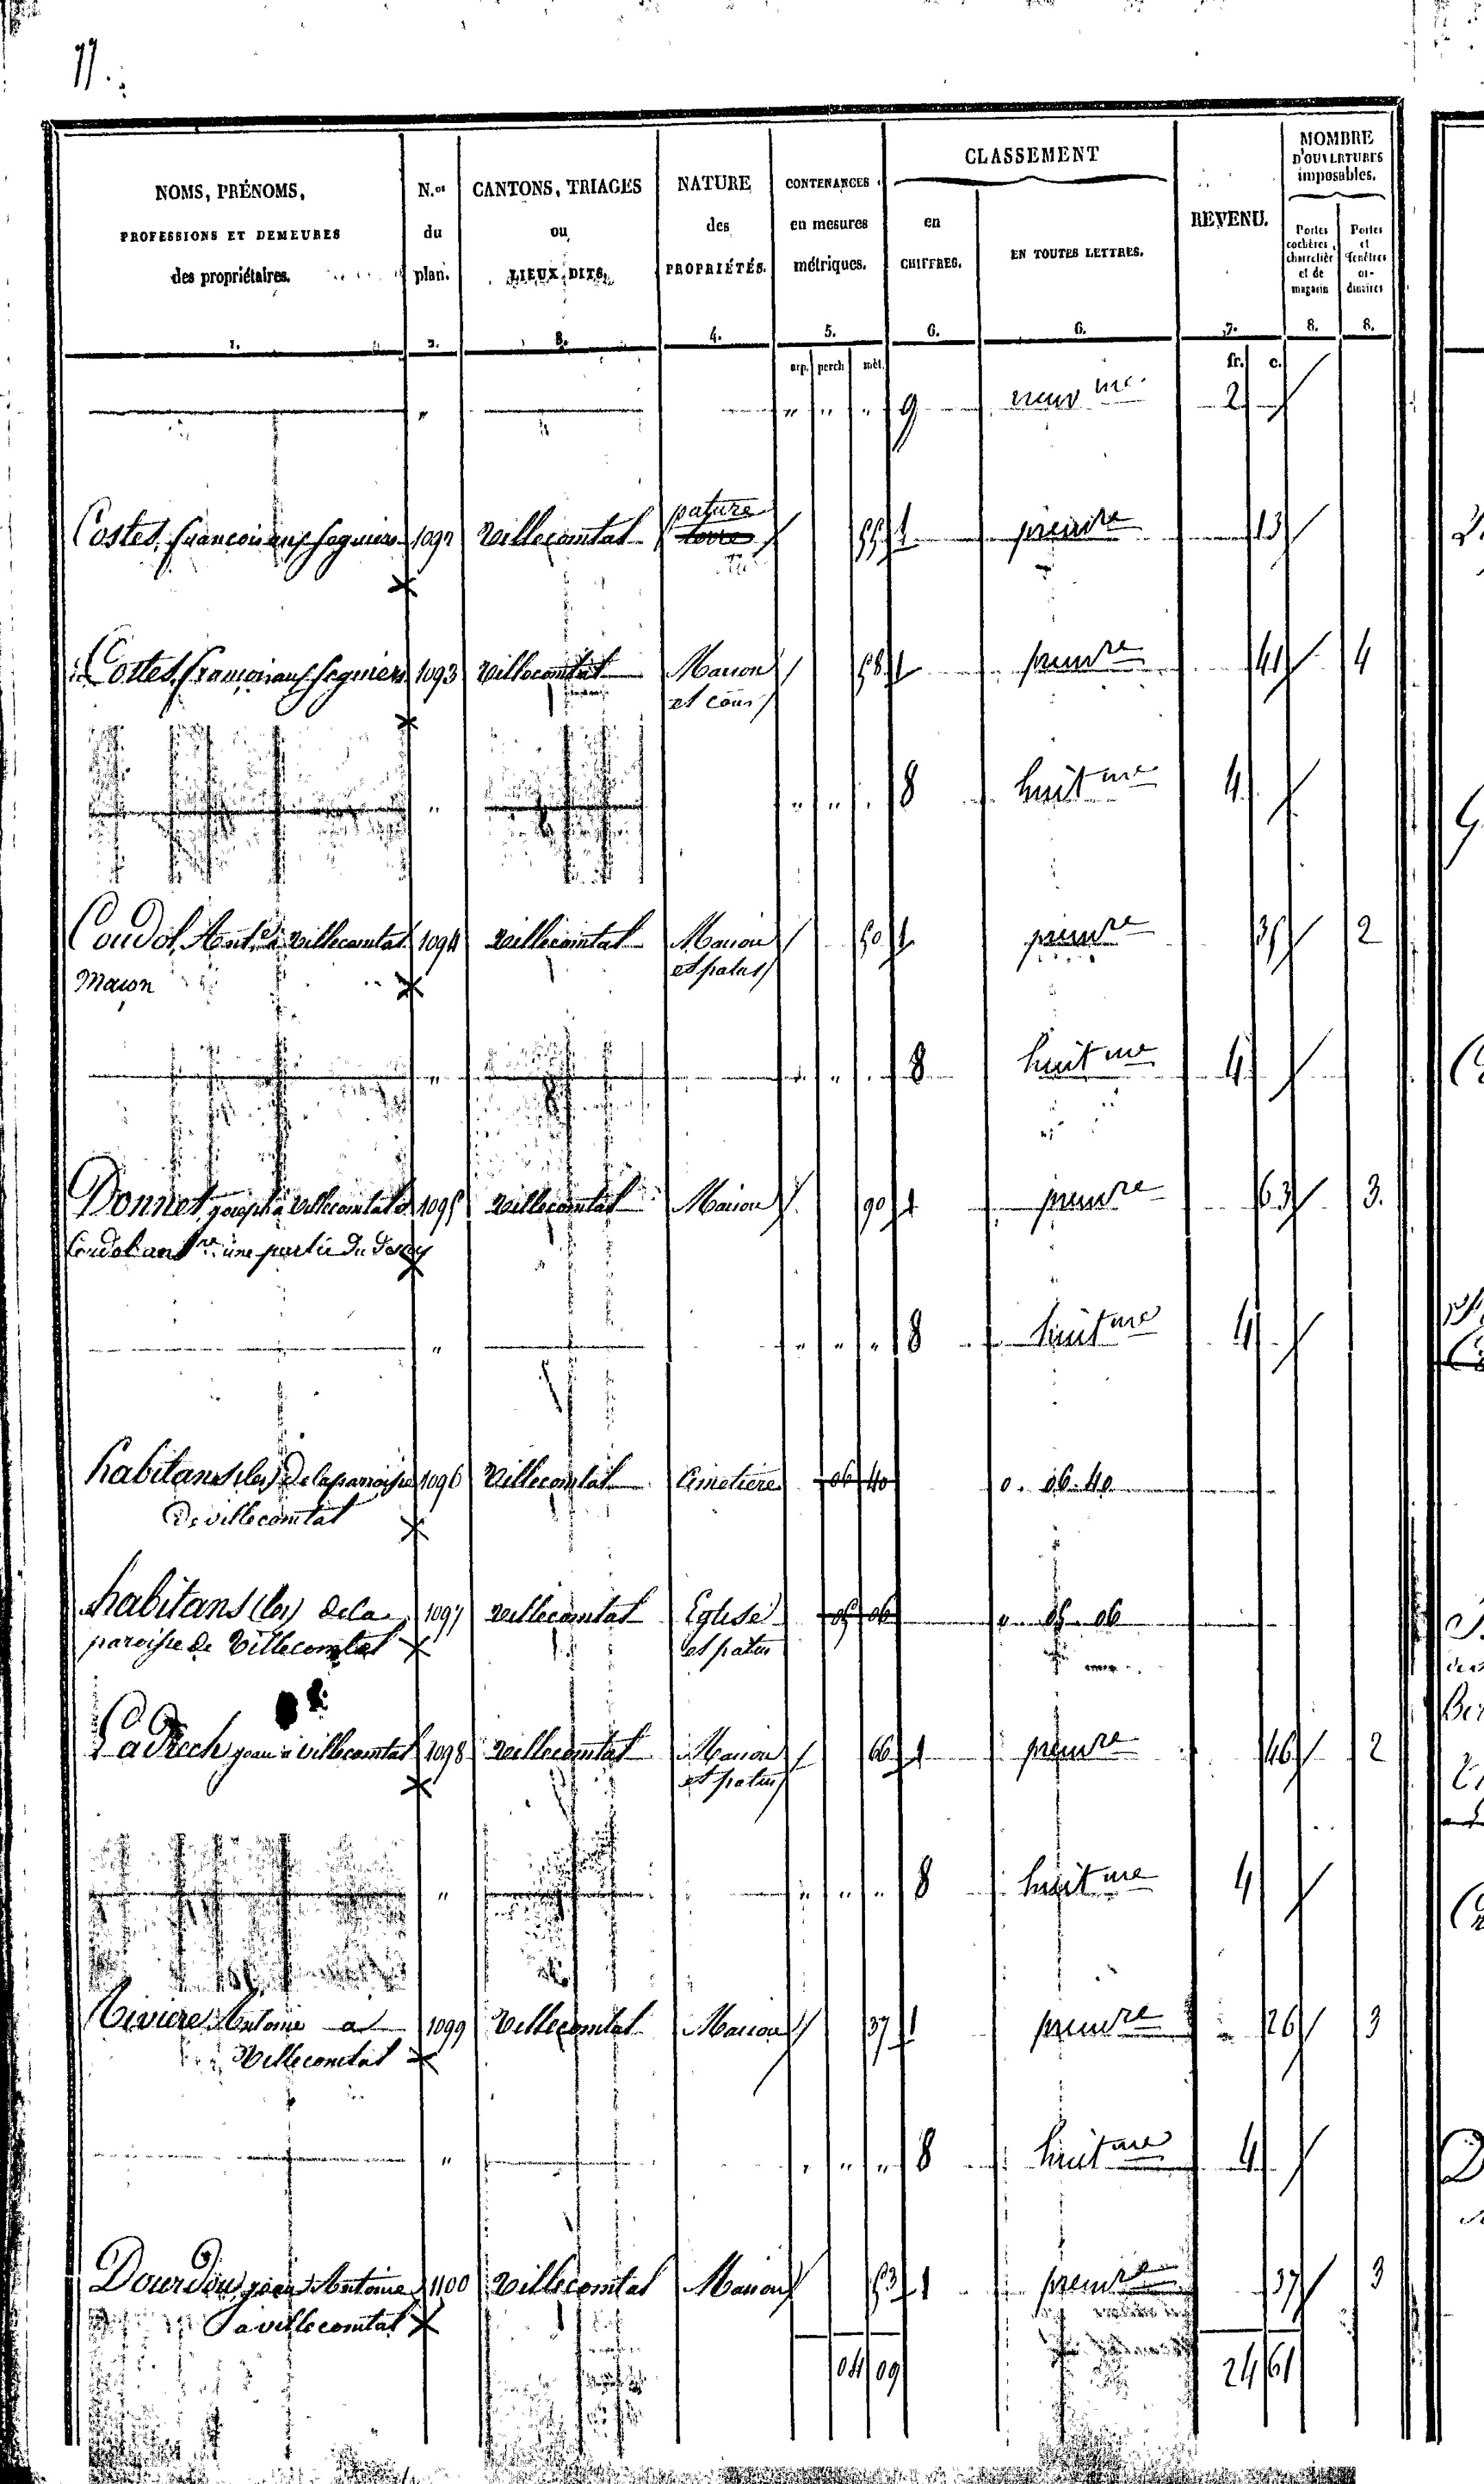 77.
NOMS, PRÉNOMS,
PROFESSIONS ET DEMEURES
des propriétaires.
1.
N.os
du
plan.
2.
CANTONS, TRIAGES
ou
LIEUX DITS.
3.
NATURE
des
PROPRIÉTÉS.
4.
CONTENANCES
en mesures
métriques.
5.
arp. perch mèt.
CLASSEMENT
en
CHIFFRES.
6.
EN TOUTES LETTRES.
6.
REVENU.
7.
fr. c.
NOMBRE
D'OUVERTURES
imposables.
Portes
cochères,
charretièr
et de
magasin
8.
Portes
et
fenêtres
or-
dinaires
8.
" " " " 9 neuv me. 2
Costes, francois aux seguiers 1092 Villecomtal pature 55 1 premre 13
terre
Costes, francois aux seguiers 1093 Villecomtal Maison 58 1 premre 41 4
et cour
" " " " 8 huit me 4
Coudol, Ant.e à villecomtal 1094 Villecomtal Maison 50 1 premre 35 2
Maçon et patus
" " " " 8 huit me 4
Donnet, joseph à villecomtal et 1095 Villecomtal Maison 90 1 premre 63 3.
Coudol ant ne une partie du
" " " " 8 huit me 4
habitans (les) de la paroisse 1096 Villecomtal Cimetière 06 40 0. 06. 40
De villecomtal
habitans (les) de la 1097 Villecomtal Eglise 05 06 0. 05. 06
paroisse de Villecomtal et patus
Ladrech jean à villecomtal 1098 Villecomtal Maison 66 1 premre 46 2
et patus
" " " " 8 huit me 4
Riviere Antoine à 1099 Villecomtal Maison 37 1 premre 26 3
Villecomtal
" " " " 8 huit me 4
Dourdou, jean Antoine 1100 Villecomtal Maison 53 1 premre 37 3
a villecomtal
04 09 24 61